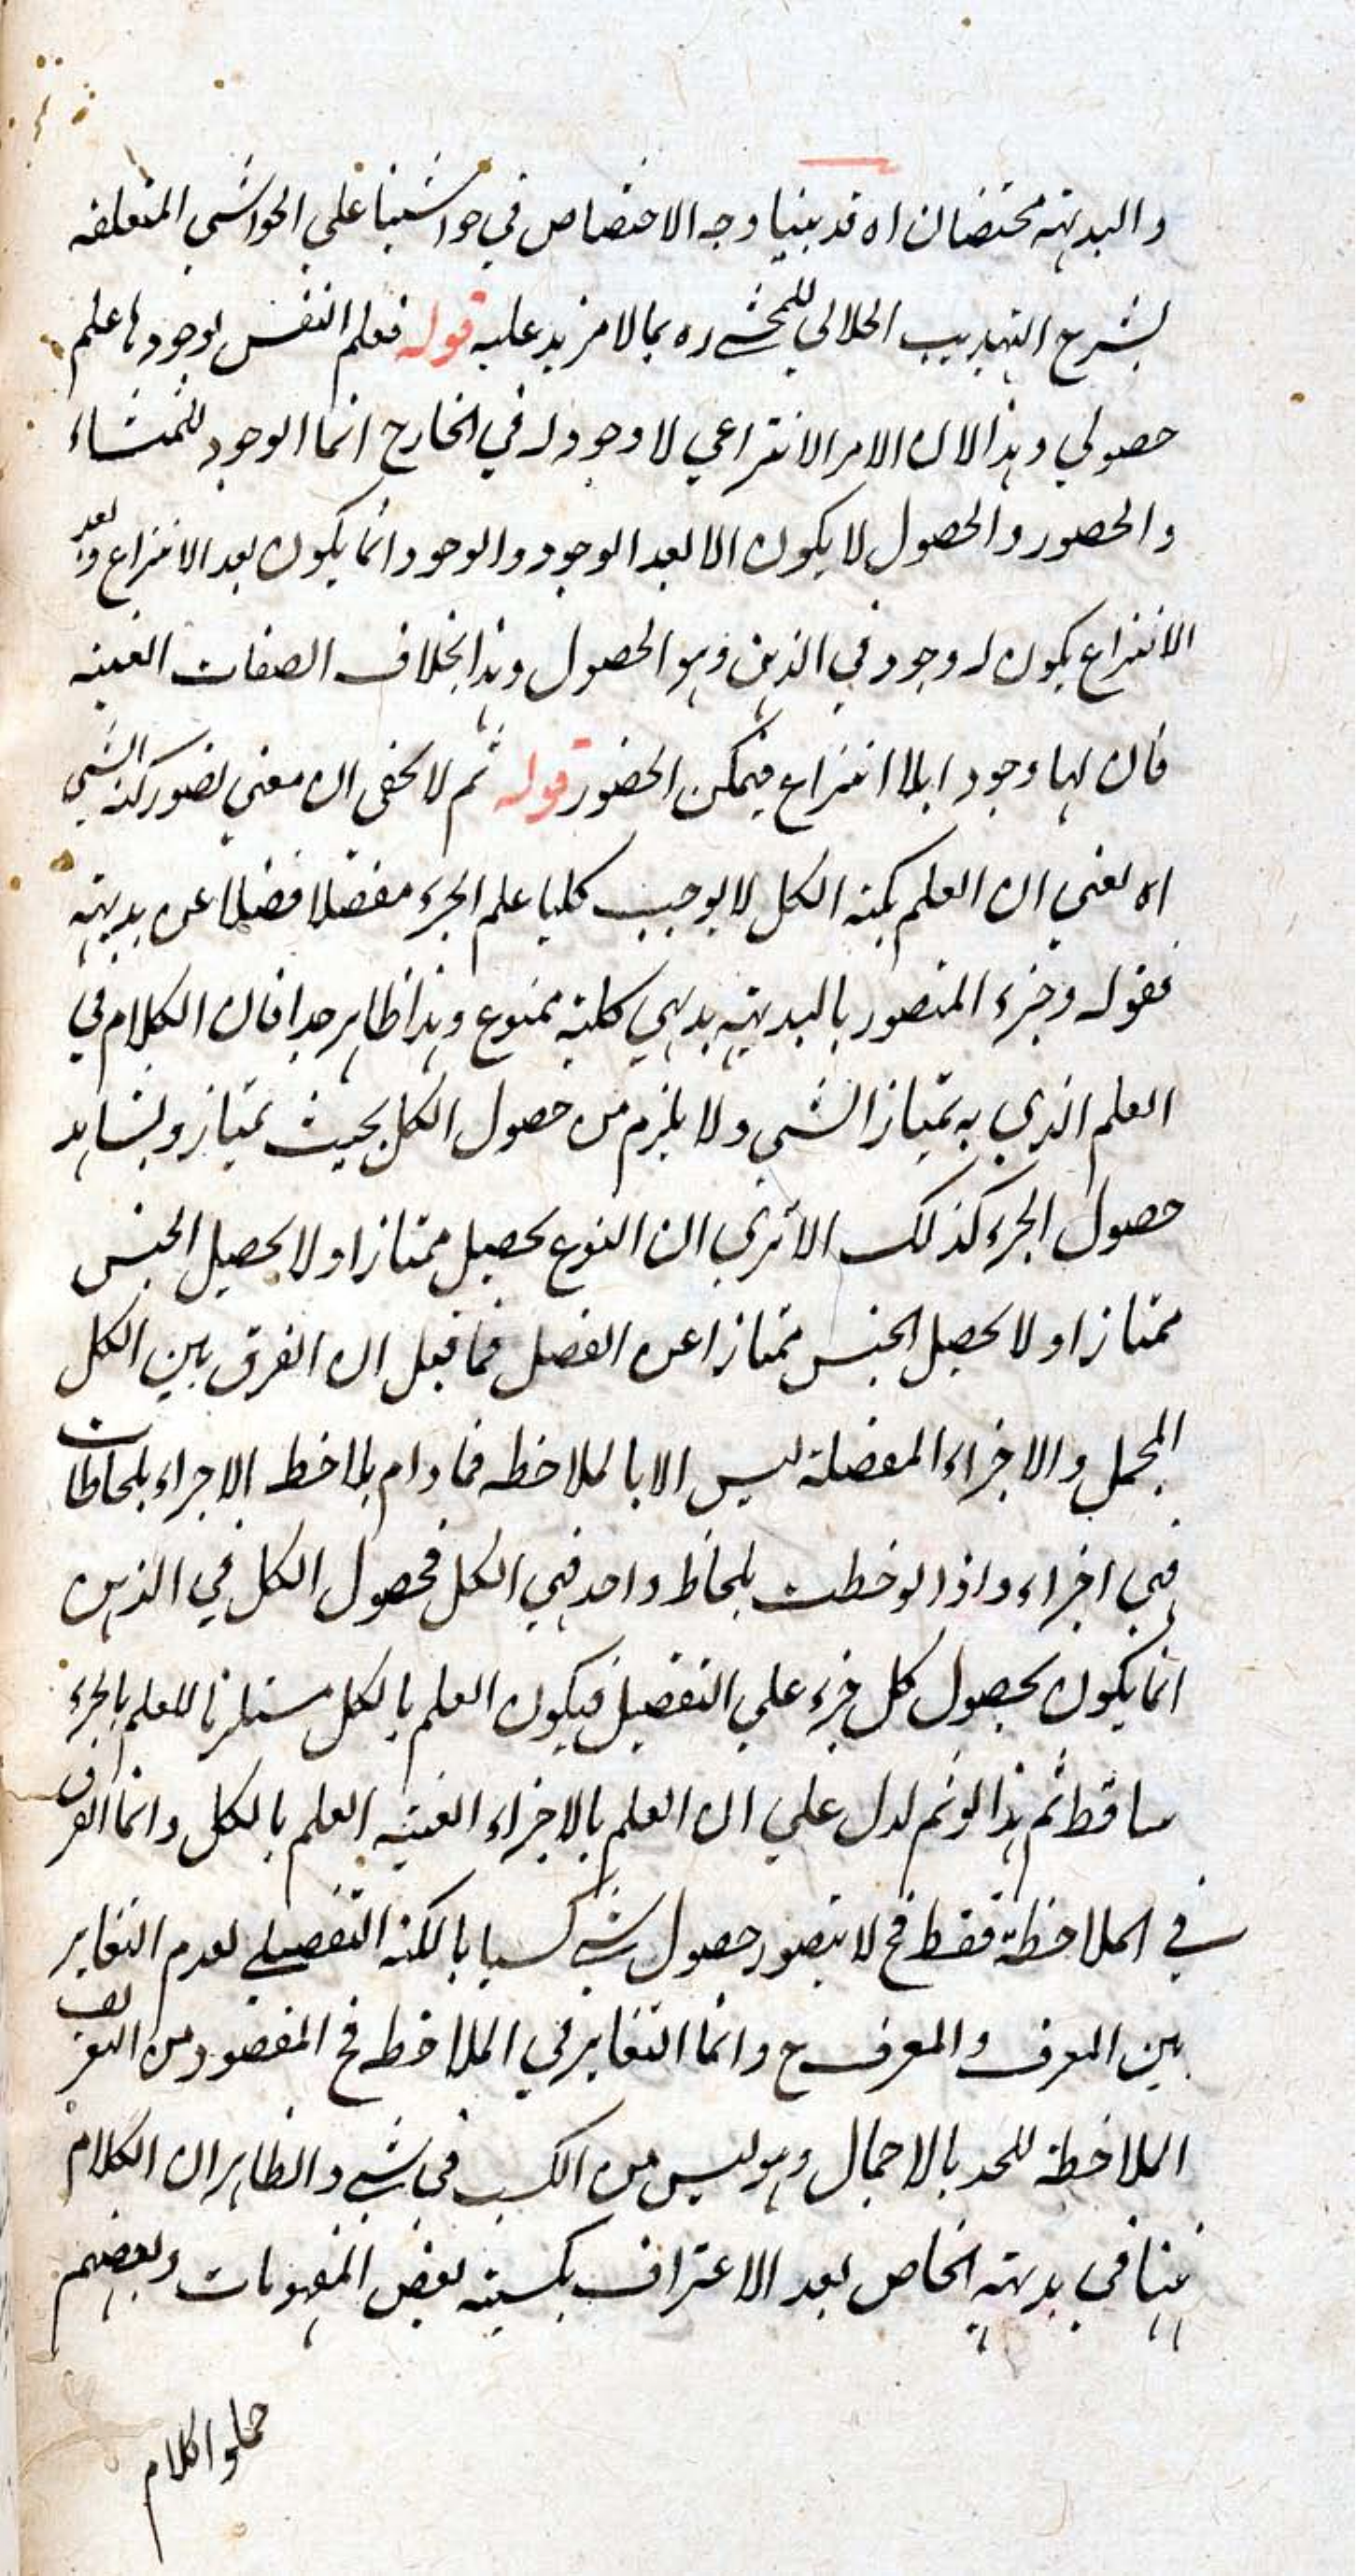 والبديهة مختصان اه قد بينا وجه الاختصاص في حواشينا علي الحواشي المتعلقه
بشرح التهذيب الجلالي للمحشي ره بما لا مزيد عليه قوله فعلم النفس بوجودها علم
حصولي وهذا لان الامر الانتزاعي لا وجود له في الخارج انما الوجود للمنشاء
والحضور والحصول لا يكون الا بعد الوجود والوجود انما يكون بعد الانتزاع وبعد
الانتزاع يكون له وجود في الذهن وهو الحصول وهذا بخلاف الصفات العينيه
فان لها وجودا بلا انتزاع فيمكن الحضور قوله ثم لا يخفى ان معني تصور كنه الشي
اه يعني ان العلم بكنه الكل لا يوجب كليا علم الجزء مفصلا فضلا عن بديهته
فقوله وجزء المتصور بالبديهة بديهي كلية ممنوع وهذا ظاهر جدا فان الكلام في
العلم الذي به يمتاز الشي ولا يلزم من حصول الكل بحيث يمتاز ويشاهد
حصول الجزء كذلك الا تري ان النوع يحصل ممتازا ولا يحصل الجنس
ممتازا ولا يحصل الجنس ممتازا عن الفصل فما قيل ان الفرق بين الكل
المجمل والاجزاء المفصلة ليس الا بالملاحظه فما دام يلاحظ الاجزاء بلحاظات
فهي اجزاء واذا لوحظت بلحاظ واحد فهي الكل فحصول الكل في الذهن
انما يكون بحصول كل جزء علي التفصيل فيكون العلم بالكل مستلزما للعلم بالجزء
ساقط ثم هذا لو تم لدل علي ان العلم بالاجزاء العينيه العلم بالكل وانما الفرق
في الملاحظة فقط فح لا يتصور حصول شي كسبا بالكنه التفصيلي لعدم التغاير
بين المعرف والمعرف ح وانما التغاير في الملاحظه فح المقصود من التعريف
الملاحظة للحد بالاجمال وهو ليس من الكسب في شي والظاهر ان الكلام
ههنا في بديهة الخاص بعد الاعتراف بكسبية بعض المفهومات وبعضهم
حملوا كلام